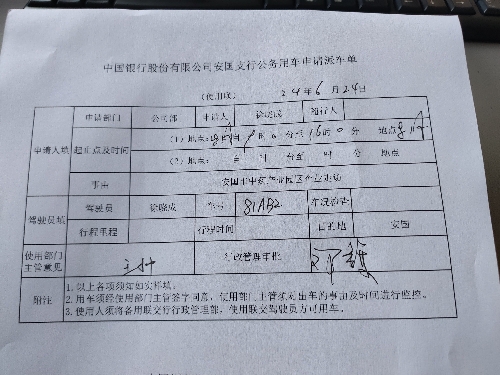 中国银行股份有限公司安国支行公务用车申请派车单
（使用联） 24年6月24日
申请人填 申请部门 公司部 申请人 徐晓成 随行人
起止点及时间 （1）地点： 时0分至16时0分 地点
（2）地点： 自 时 分至 时 分 地点
事由 安国市中药产业园区企业走访
驾驶员填 驾驶员 徐晓成 车号 81AB2 车况检查
行程里程 行程时间 目的地 安国
使用部门主管意见 行政管理审批
附注 1.以上各项须如实样填。
2.用车须经使用部门主管签字同意，使用部门主管须对出车的事由及时间进行监控。
3.使用人须将各用联交行行政管理部，使用联交驾驶员方可用车。